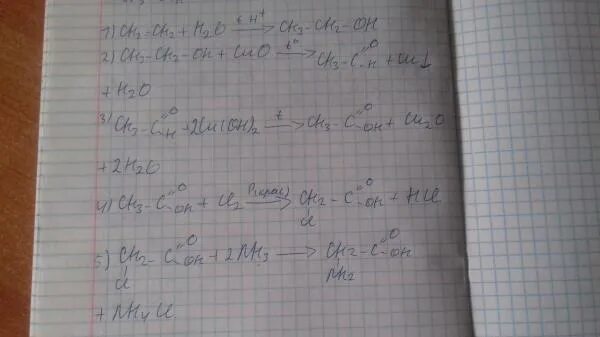 1) CH₂-CH₂ + H₂O t, H⁺ → CH₃-CH₂-OH
2) CH₃-CH₂-OH + CuO t° → CH₃-C=O-H + Cu↓
+ H₂O
3) CH₃-C=O-H + 2Cu(OH)₂ t → CH₃-C=O-OH + Cu₂O
+ 2H₂O
4) CH₃-C=O-OH + Cl₂ P(крас) → CH₂-C=O-OH + HCl
Cl
5) CH₂-C=O-OH + 2NH₃ → CH₂-C=O-OH
Cl NH₂
+ NH₄Cl